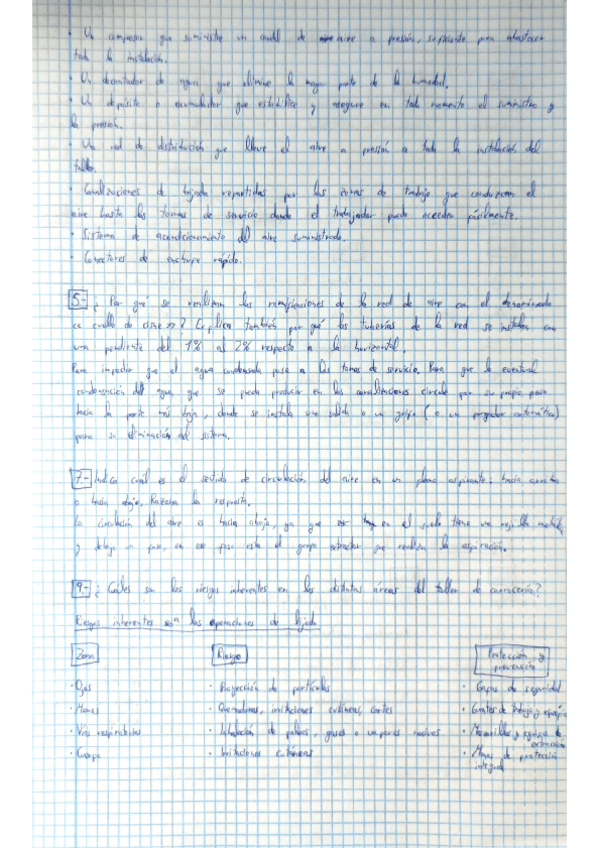 · Un compresor que suministre un caudal de aire a presión, suficiente para abastecer
toda la instalación.
· Un decantador de agua, que elimine la mayor parte de la humedad.
· Un depósito o acumulador que estabilice y asegure en todo momento el suministro y
la presión.
· Una red de distribución que lleve el aire a presión a toda la instalación del
taller.
· Canalizaciones de bajada repartidas por las zonas de trabajo que conduzcan el
aire hasta las tomas de servicio donde el trabajador pueda acceder fácilmente.
· Sistema de acondicionamiento del aire suministrado.
· Conectores de enchufe rápido.
5- ¿Por qué se realizan las ramificaciones de la red de aire con el denominado
cuello de cisne»? Explica también por qué las tuberías de la red se instalan con
una pendiente del 1% al 2% respecto a la horizontal.
Para impedir que el agua condensada pase a las tomas de servicio. Para que la eventual
condensación del agua que se pueda producir en las canalizaciones circule por su propio peso
hacia la parte más baja, donde se instala una salida o un grifo (o un purgador automático)
para su eliminación del sistema.
7- Indica cuál es el sentido de circulación del aire en un plano aspirante: hacia arriba
o hacia abajo. Razona la respuesta.
La circulación del aire es hacia abajo, ya que en el suelo tiene una rejilla metálica
y debajo un foso, en ese foso está el grupo extractor que realiza la aspiración.
9- ¿Cuáles son los riesgos inherentes en las distintas áreas del taller de carrocería?
Riesgos inherentes a las operaciones de lijado
Zona Riesgo Protección y prevención
· Ojos · Proyección de partículas · Gafas de seguridad
· Manos · Quemaduras, irritaciones cutáneas, cortes · Guantes de trabajo y
· Vías respiratorias · Inhalación de polvos, gases o vapores nocivos · Mascarillas y equipos de extracción
· Cuerpo · Irritaciones cutáneas · Monos de protección integral